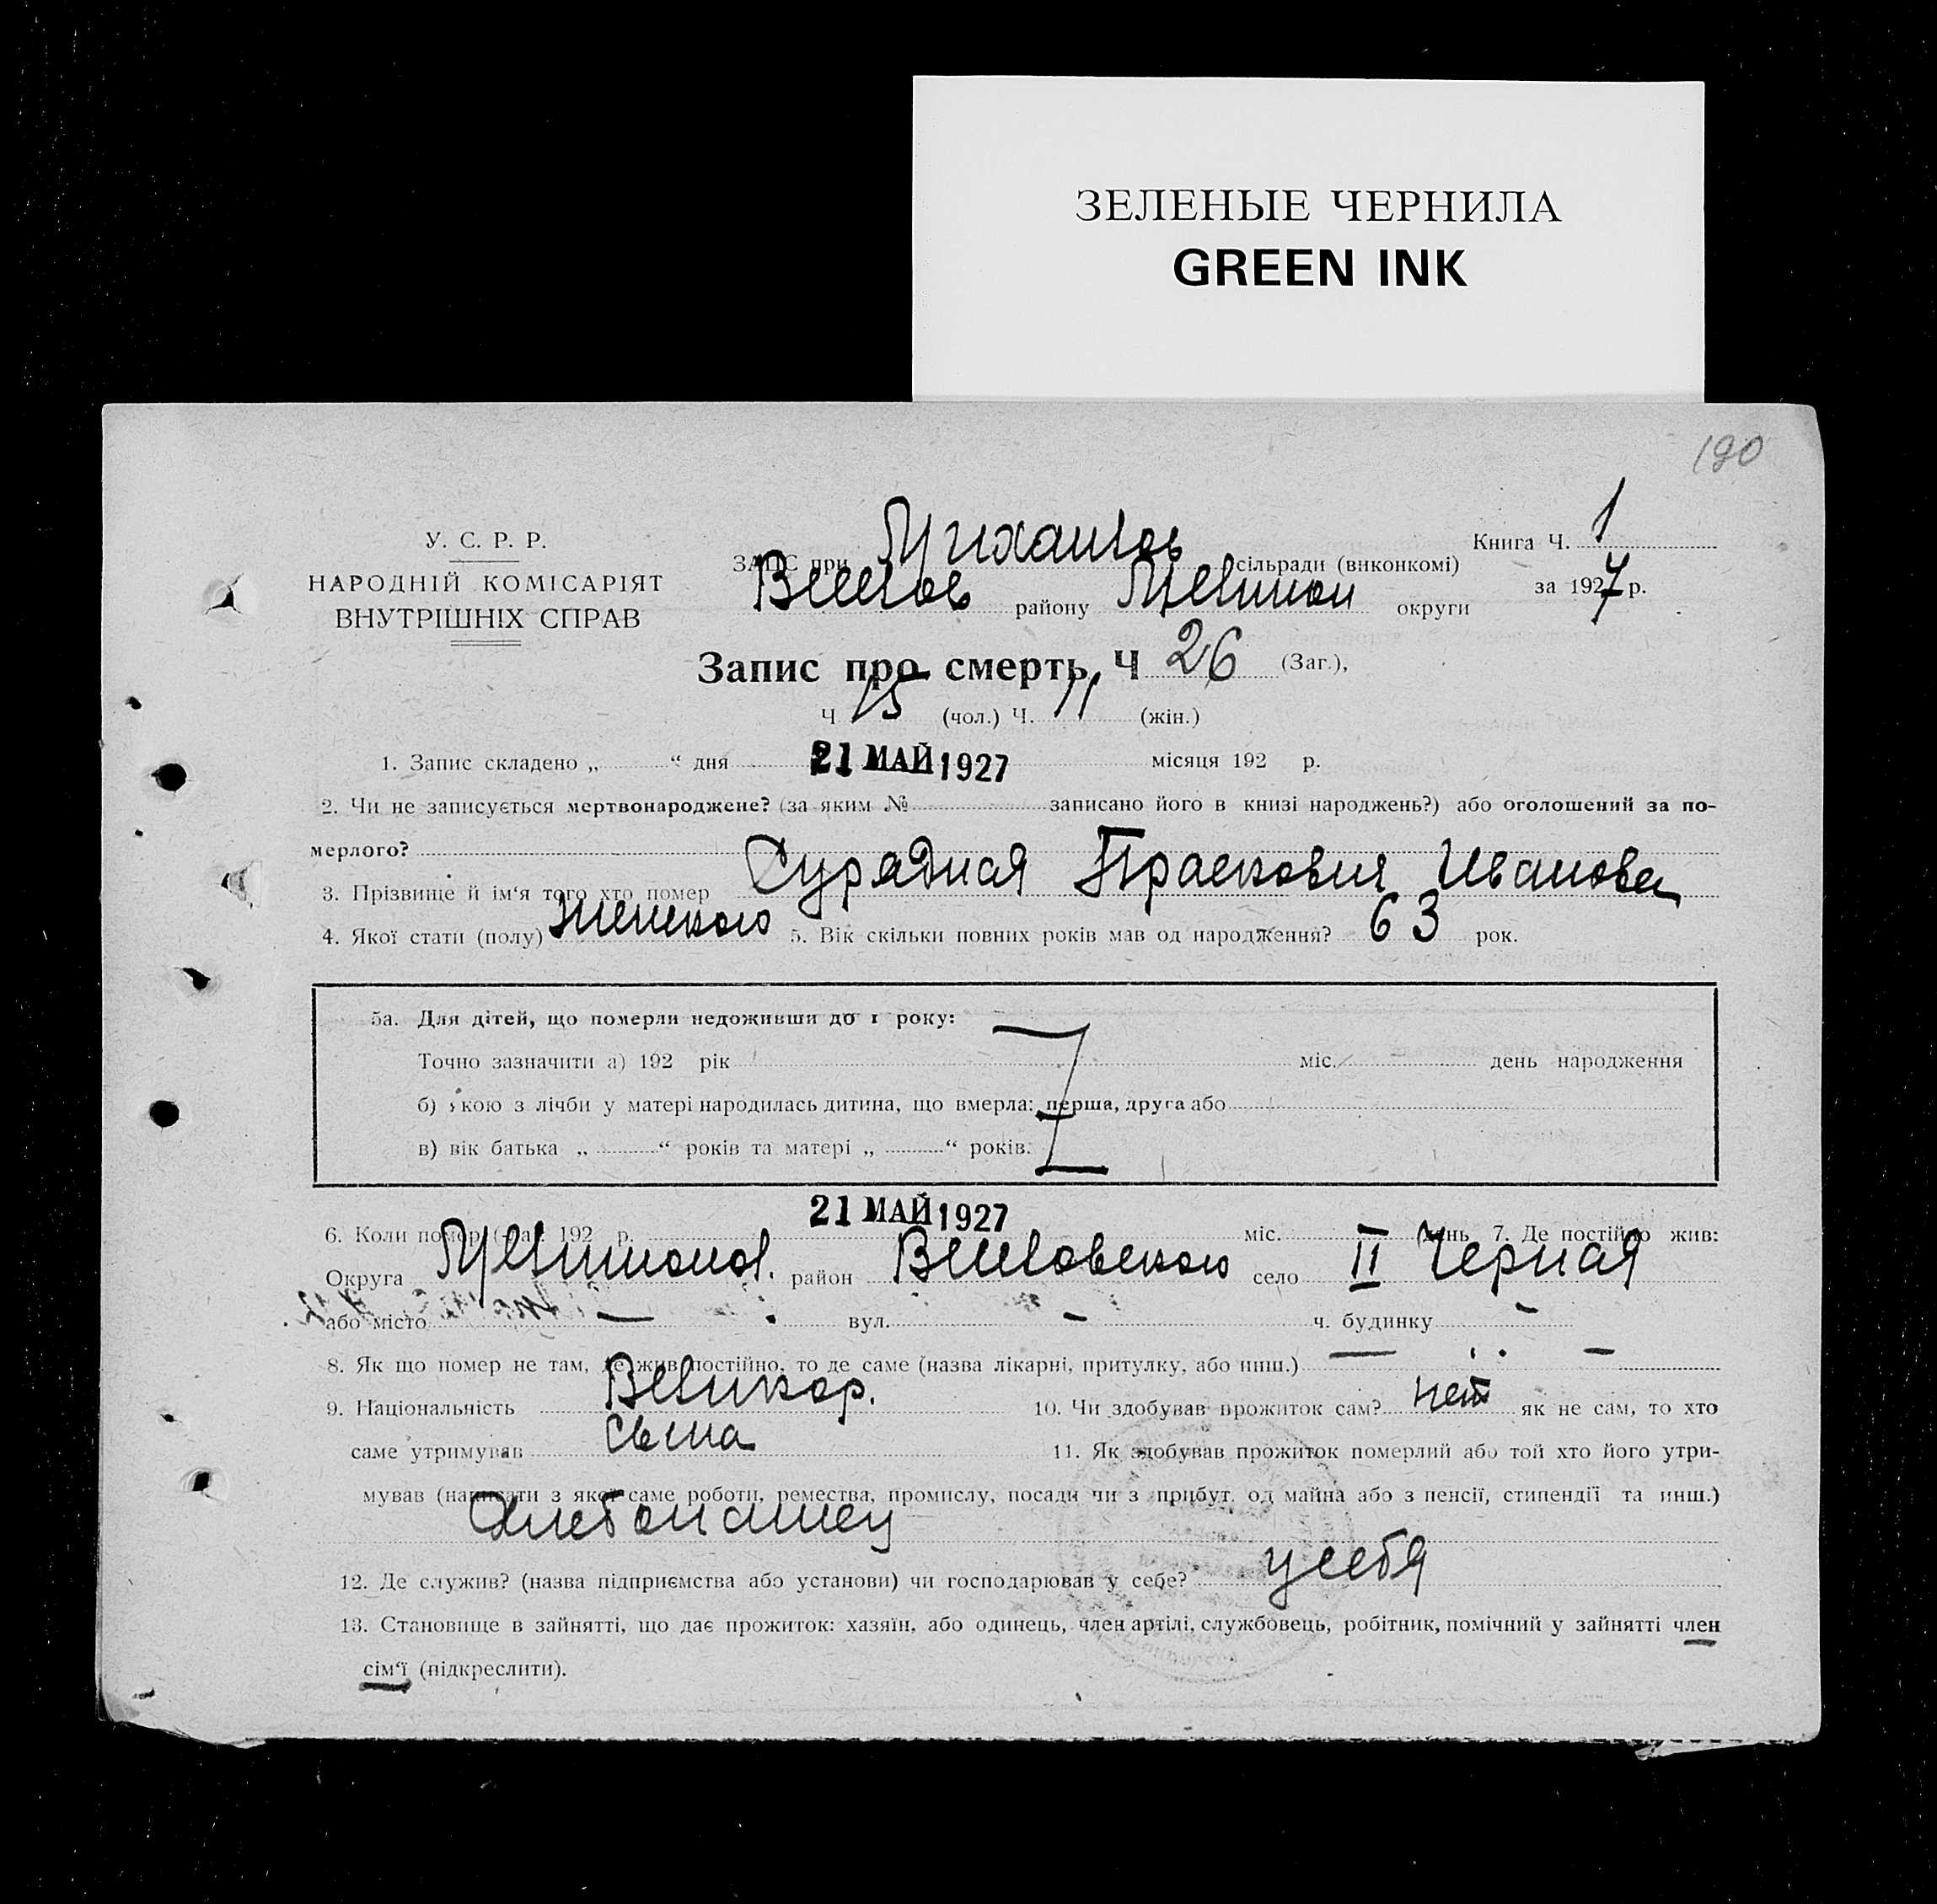 ЗЕЛЕНЫЕ ЧЕРНИЛА
GREEN INK
190
У. С. Р. Р.
НАРОДНІЙ КОМІСАРІЯТ
ВНУТРІШНІХ СПРАВ
ЗАГС при Михайлов сільради (виконкомі)
Книга Ч. 1
району округи
за 1927 р.
Запис про смерть Ч 26 (Заг.),
Ч 15 (чол.) Ч. 11 (жін.)
1. Запис складено „ “ дня 21 МАЙ 1927 місяця 192 р.
2. Чи не записується мертвонароджене? (за яким № записано його в книзі народжень?) або оголошений за по-
мерлого?
3. Прізвище й ім‘я того хто помер Сурядная Прасковия Иванова
4. Якої стати (полу) женского 5. Вік скільки повних років мав од народження? 63 рок.
5а. Для дітей, що померли недоживши до 1 року:
Точно зазначити а) 192 рік міс. день народження
б) якою з лічби у матері народилась дитина, що вмерла: перша, друга або
в) вік батька „ “ років та матері „ “ років.
21 МАЙ 1927
6. Коли помер 192 р. міс. день 7. Де постійно жив:
Округа район село II Черная
або місто — вул. — ч. будинку —
8. Як що помер не там, де жив постійно, то де саме (назва лікарні, притулку, або инш.) — —
9. Національність Великор. 10. Чи здобував прожиток сам? нет як не сам, то хто
саме утримував сына 11. Як здобував прожиток померлий або той хто його утри-
мував (написати з якої саме роботи, ремества, промислу, посади чи з прибут. од майна або з пенсії, стипендії та инш.)
Хлебопашец
12. Де служив? (назва підприємства або установи) чи господарював у себе? у себя
13. Становище в зайнятті, що дає прожиток: хазяїн, або одинець, член артілі, службовець, робітник, помічний у зайнятті член
сім‘ї (підкреслити).